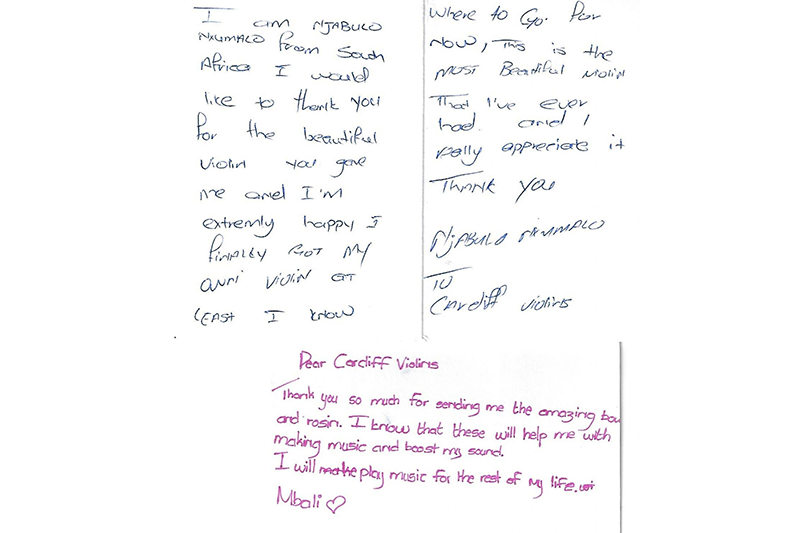 I am NJABULO
NXUMALO from South
Africa I would
like to thank you
for the beautiful
violin you gave
me and I'm
extremly happy I
finally got my
own violin at
least I know
where to Go. for
now, This is the
most Beautiful violin
That I've ever
had. and I
really appreciate it
Thank you
NJABULO NXUMALO
To
Cardiff violins
Dear Cardiff Violins
Thank you so much for sending me the amazing bow
and rosin. I know that these will help me with
making music and boost my sound.
I will make play music for the rest of my life.
Mbali ♡